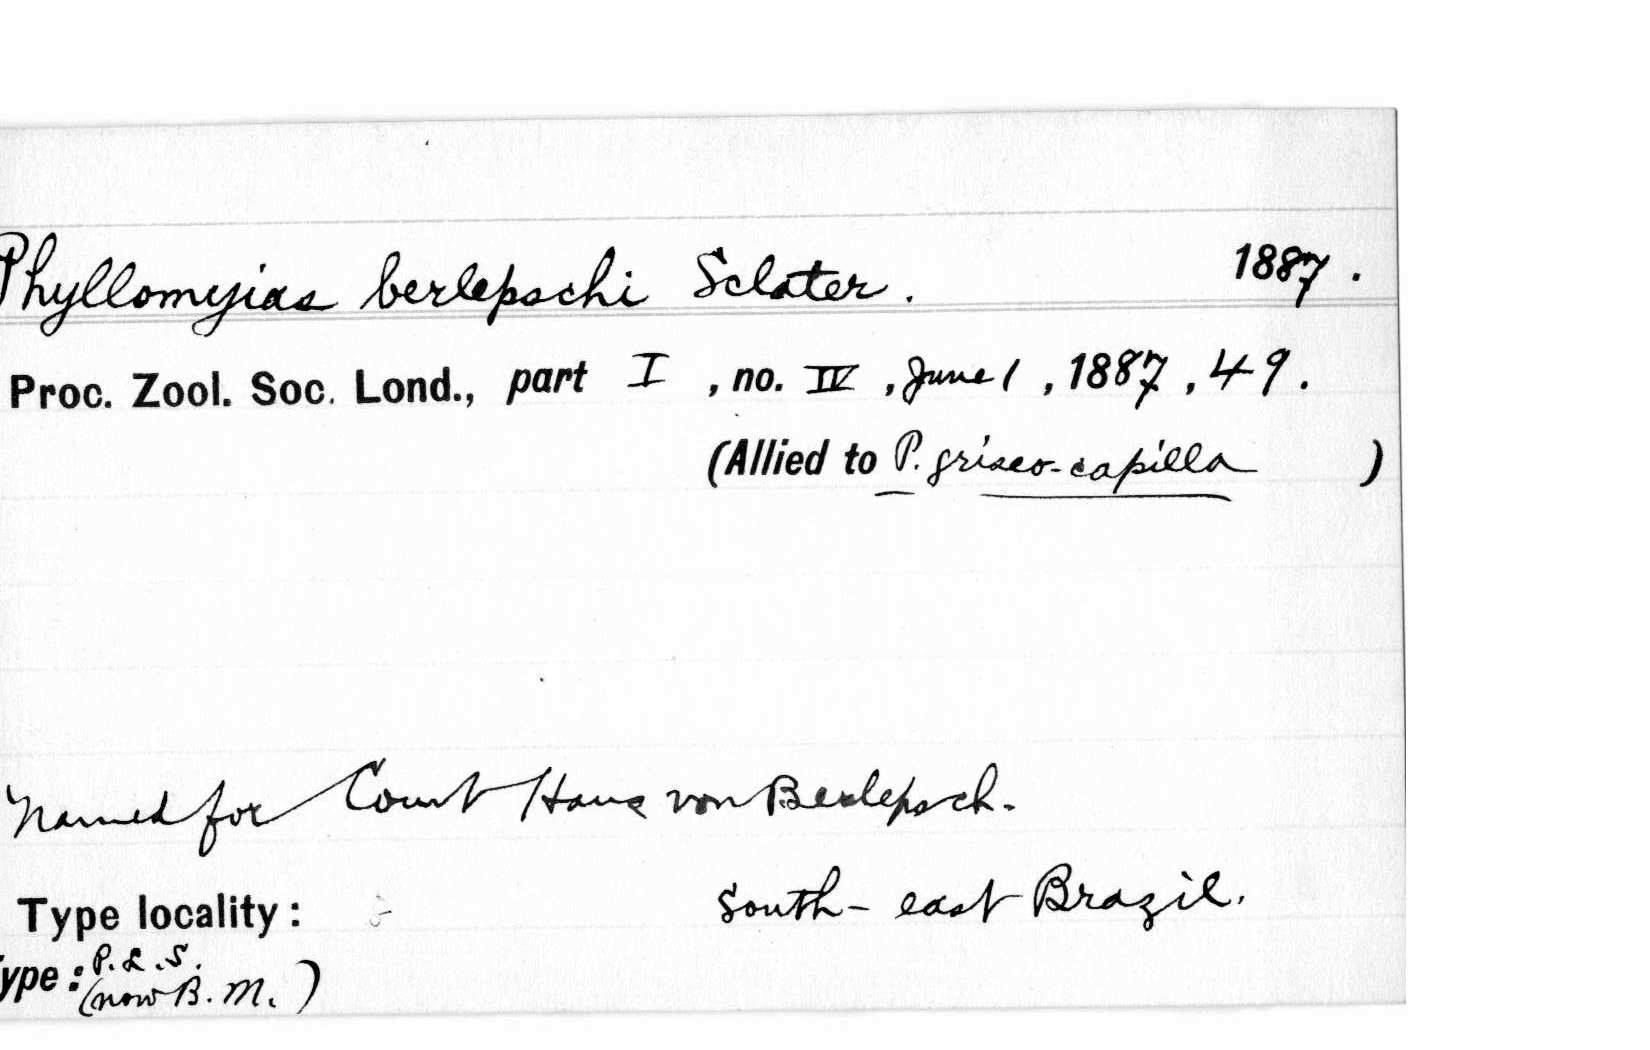 Phyllomyias berlepschi Sclater. 1887.
Proc. Zool. Soc. Lond., part I, no. IV, June 1, 1887, 49.
(Allied to P. griseo-capilla )
Named for Count Hans von Berlepsch.
Type locality: South-east Brazil.
Type: P.L.S.
(now B.M.)